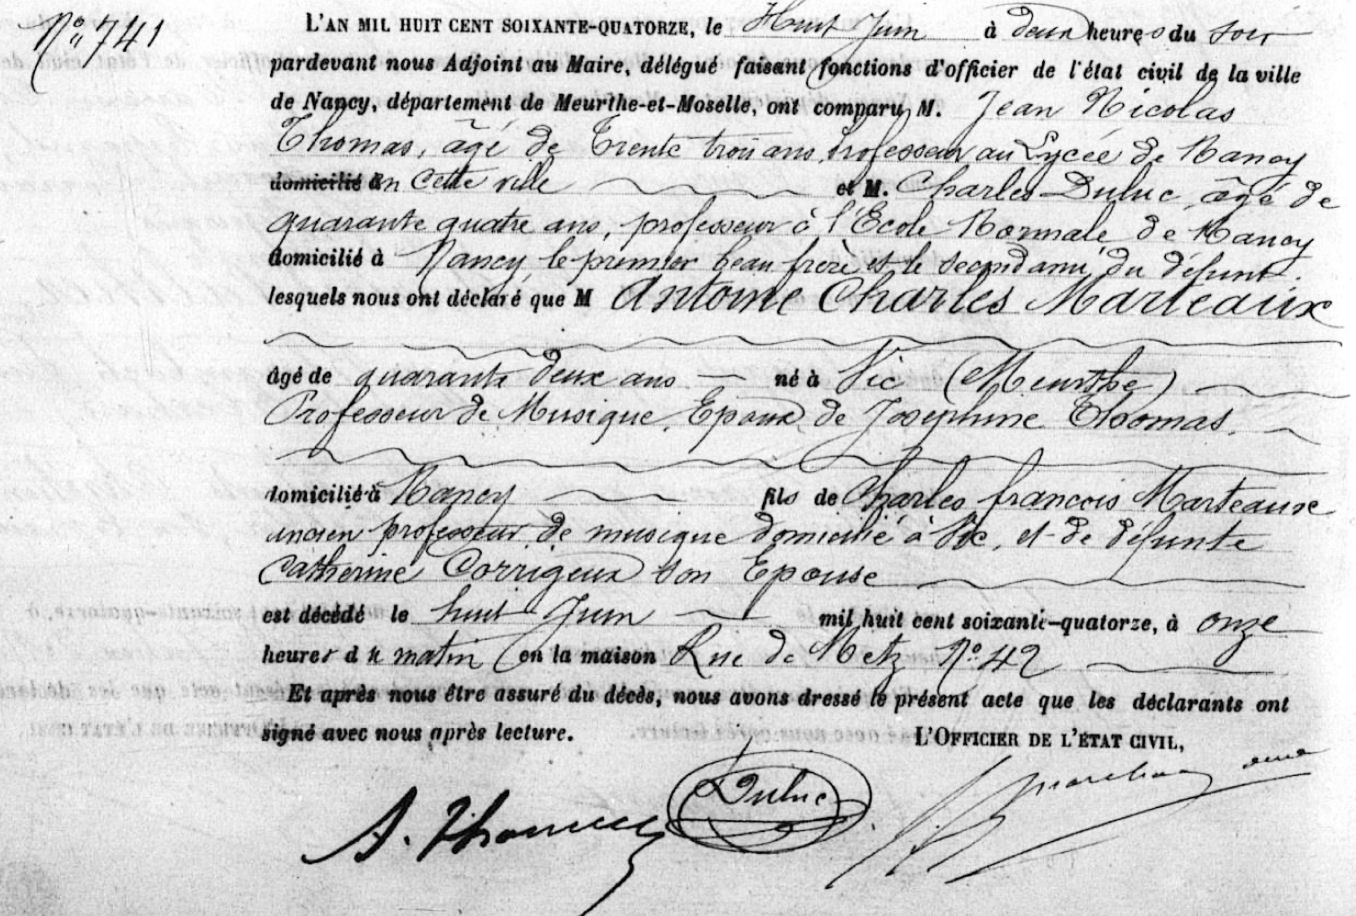 N° 741
L'AN MIL HUIT CENT SOIXANTE-QUATORZE, le Huit Juin à deux heures du soir
pardevant nous Adjoint au Maire, délégué faisant fonctions d'officier de l'état civil de la ville
de Nancy, département de Meurthe-et-Moselle, ont comparu M. Jean Nicolas
Thomas, âgé de Trente trois ans, professeur au Lycée de Nancy
domicilié en cette ville et M. Charles Duluc, âgé de
quarante quatre ans, professeur à l'Ecole Normale de Nancy
domicilié à Nancy le premier beau frère et le second ami du défunt.
lesquels nous ont déclaré que M Antoine Charles Marteaux
âgé de quarante deux ans né à Vic (Meurthe)
Professeur de Musique, Epoux de Joséphine Thomas,
domicilié à Nancy fils de Charles françois Marteaux
ancien professeur de musique domicilié à Vic, et de défunte
Catherine Corrigeux son Epouse
est décédé le huit Juin mil huit cent soixante-quatorze, à onze
heures du matin en la maison Rue de Metz N° 42
Et après nous être assuré du décès, nous avons dressé le présent acte que les déclarants ont
signé avec nous après lecture. L'OFFICIER DE L'ÉTAT CIVIL,
A. Thomas Duluc